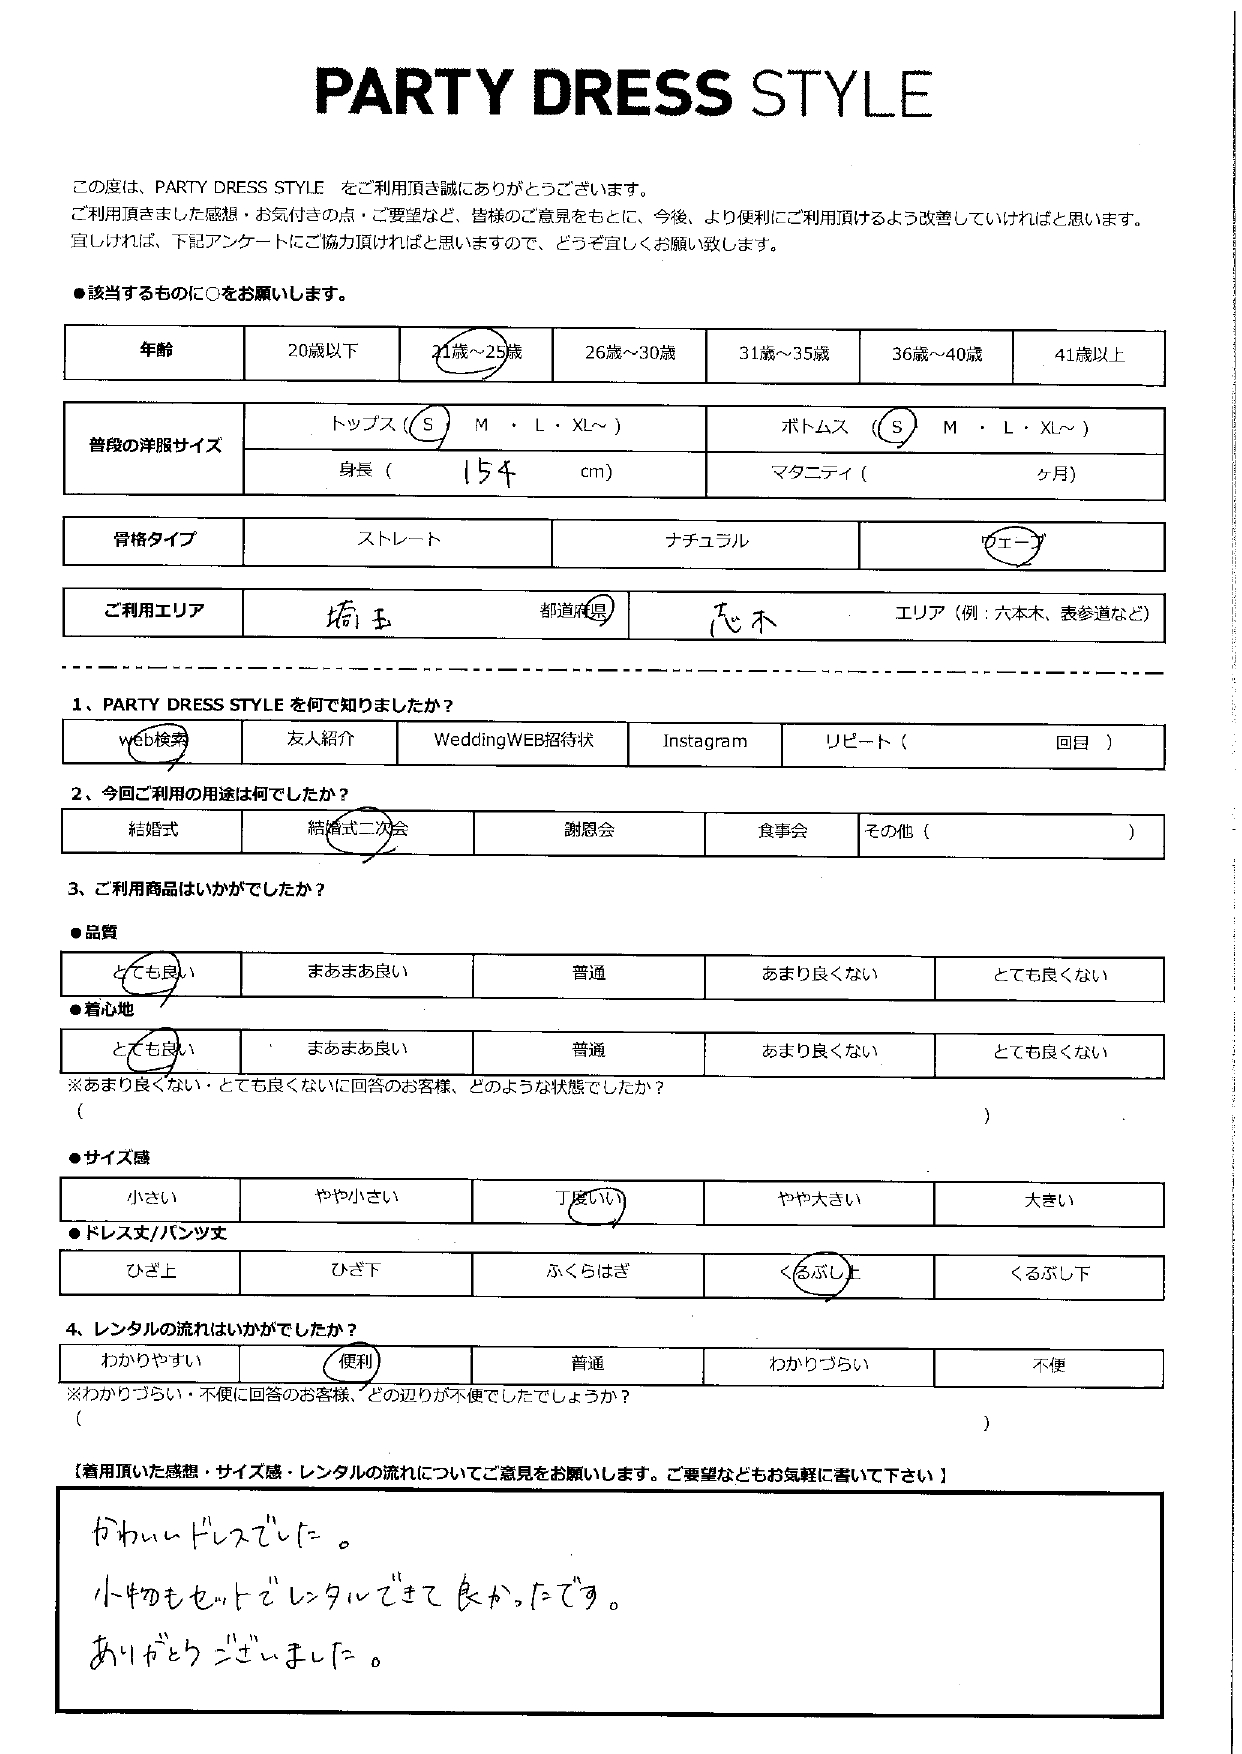 PARTY DRESS STYLE
この度は、PARTY DRESS STYLE をご利用頂き誠にありがとうございます。
ご利用頂きました感想・お気付きの点・ご要望など、皆様のご意見をもとに、今後、より便利にご利用頂けるよう改善していければと思います。
宜しければ、下記アンケートにご協力頂ければと思いますので、どうぞ宜しくお願い致します。
●該当するものに○をお願いします。
年齢 20歳以下 21歳～25歳 26歳～30歳 31歳～35歳 36歳～40歳 41歳以上
普段の洋服サイズ トップス (S M ・ L・ XL～ ) ボトムス (S ・ M ・ L・ XL～ )
身長 ( 154 cm) マタニティ ( ヶ月)
骨格タイプ ストレート ナチュラル ウェーブ
ご利用エリア 埼玉 都道府県 志木 エリア（例：六本木、表参道など）
1、PARTY DRESS STYLE を何で知りましたか？
web検索 友人紹介 WeddingWEB招待状 Instagram リピート ( 回目 )
2、今回ご利用の用途は何でしたか？
結婚式 結婚式二次会 謝恩会 食事会 その他 ( )
3、ご利用商品はいかがでしたか？
●品質
とても良い まあまあ良い 普通 あまり良くない とても良くない
●着心地
とても良い まあまあ良い 普通 あまり良くない とても良くない
※あまり良くない・とても良くないに回答のお客様、どのような状態でしたか？
( )
●サイズ感
小さい やや小さい 丁度いい やや大きい 大きい
●ドレス丈/パンツ丈
ひざ上 ひざ下 ふくらはぎ くるぶし上 くるぶし下
4、レンタルの流れはいかがでしたか？
わかりやすい 便利 普通 わかりづらい 不便
※わかりづらい・不便に回答のお客様、どの辺りが不便でしたでしょうか？
( )
【着用頂いた感想・サイズ感・レンタルの流れについてご意見をお願いします。ご要望などもお気軽に書いて下さい 】
かわいいドレスでした。
小物もセットでレンタルできて良かったです。
ありがとうございました。